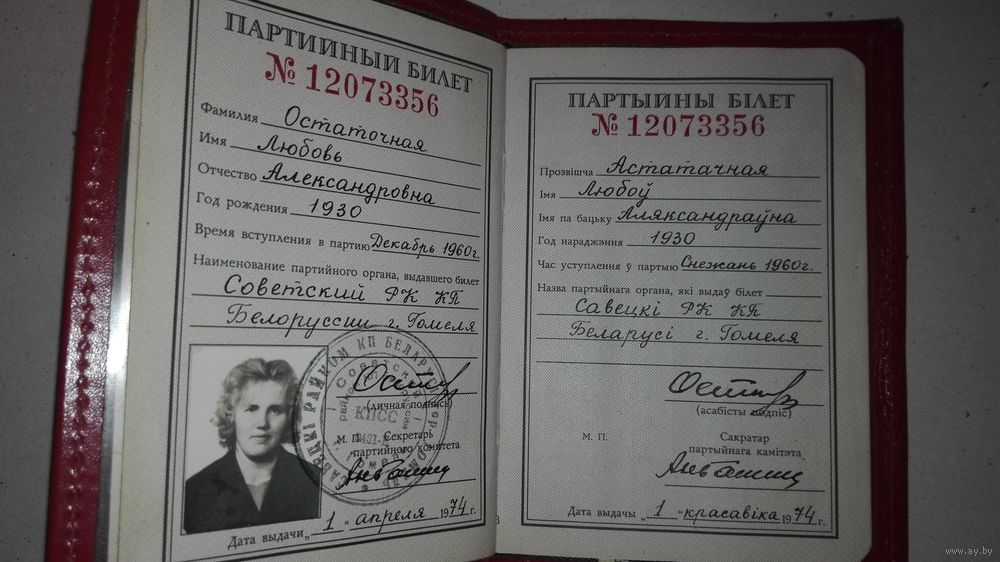 ПАРТИЙНЫЙ БИЛЕТ
№ 12073356
Фамилия Остаточная
Имя Любовь
Отчество Александровна
Год рождения 1930
Время вступления в партию Декабрь 1960 г.
Наименование партийного органа, выдавшего билет
Советский РК КП
Белоруссии г. Гомеля
КПСС
(личная подпись)
М. П. Секретарь
партийного комитета
Дата выдачи „1" апреля 1974 г.
ПАРТЫЙНЫ БІЛЕТ
№ 12073356
Прозвішча Астатачная
Імя Любоў
Імя па бацьку Аляксандраўна
Год нараджэння 1930
Час уступлення ў партыю Снежань 1960 г.
Назва партыйнага органа, які выдаў білет
Савецкі РК КП
Беларусі г. Гомеля
(асабісты подпіс)
М. П. Сакратар
партыйнага камітэта
Дата выдачы „1" красавіка 1974 г.
3
www.ay.by